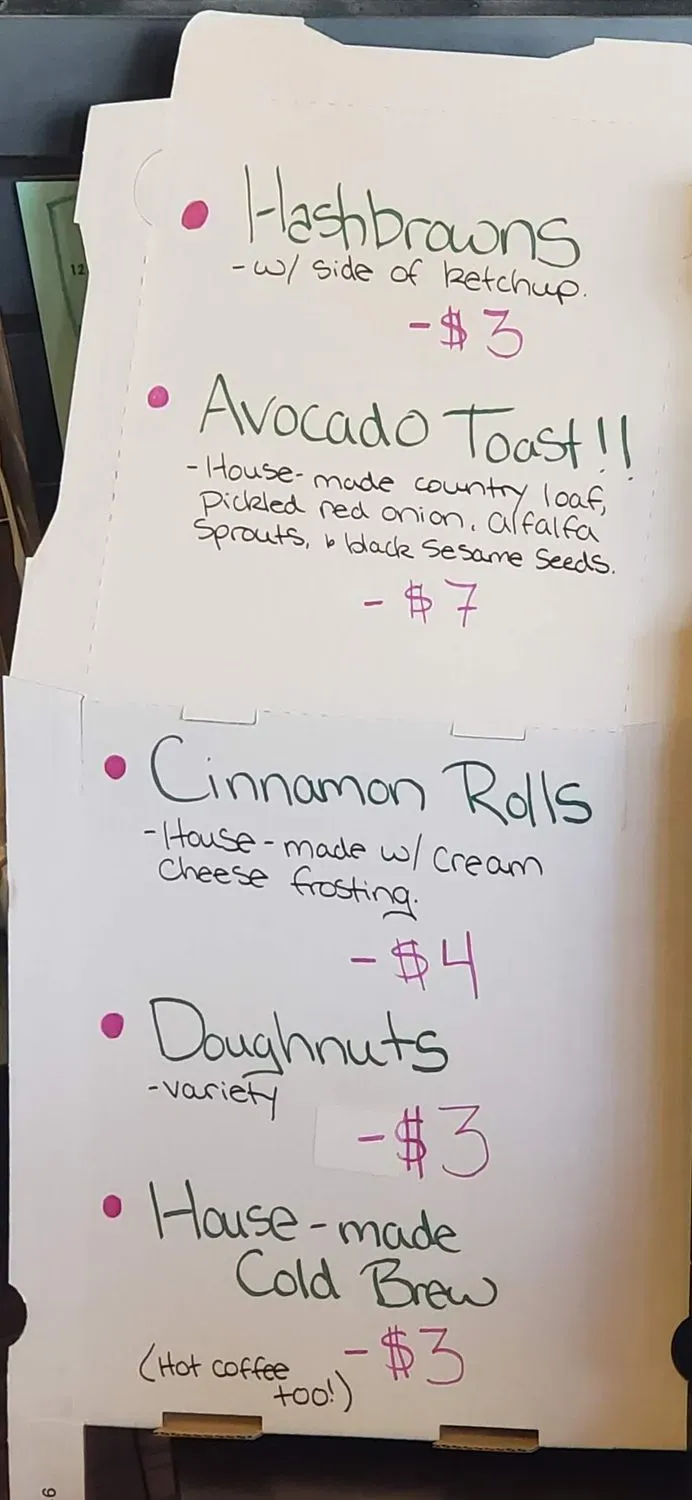 12
• Hashbrowns
-w/ side of ketchup.
-$3
• Avocado Toast!!
-House-made country loaf,
Pickled red onion, alfalfa
Sprouts, & black Sesame Seeds.
- $7
• Cinnamon Rolls
-House-made w/ cream
cheese frosting.
-$4
• Doughnuts
-variety
-$3
• House-made
Cold Brew
-$3
(Hot coffee
too!)
9